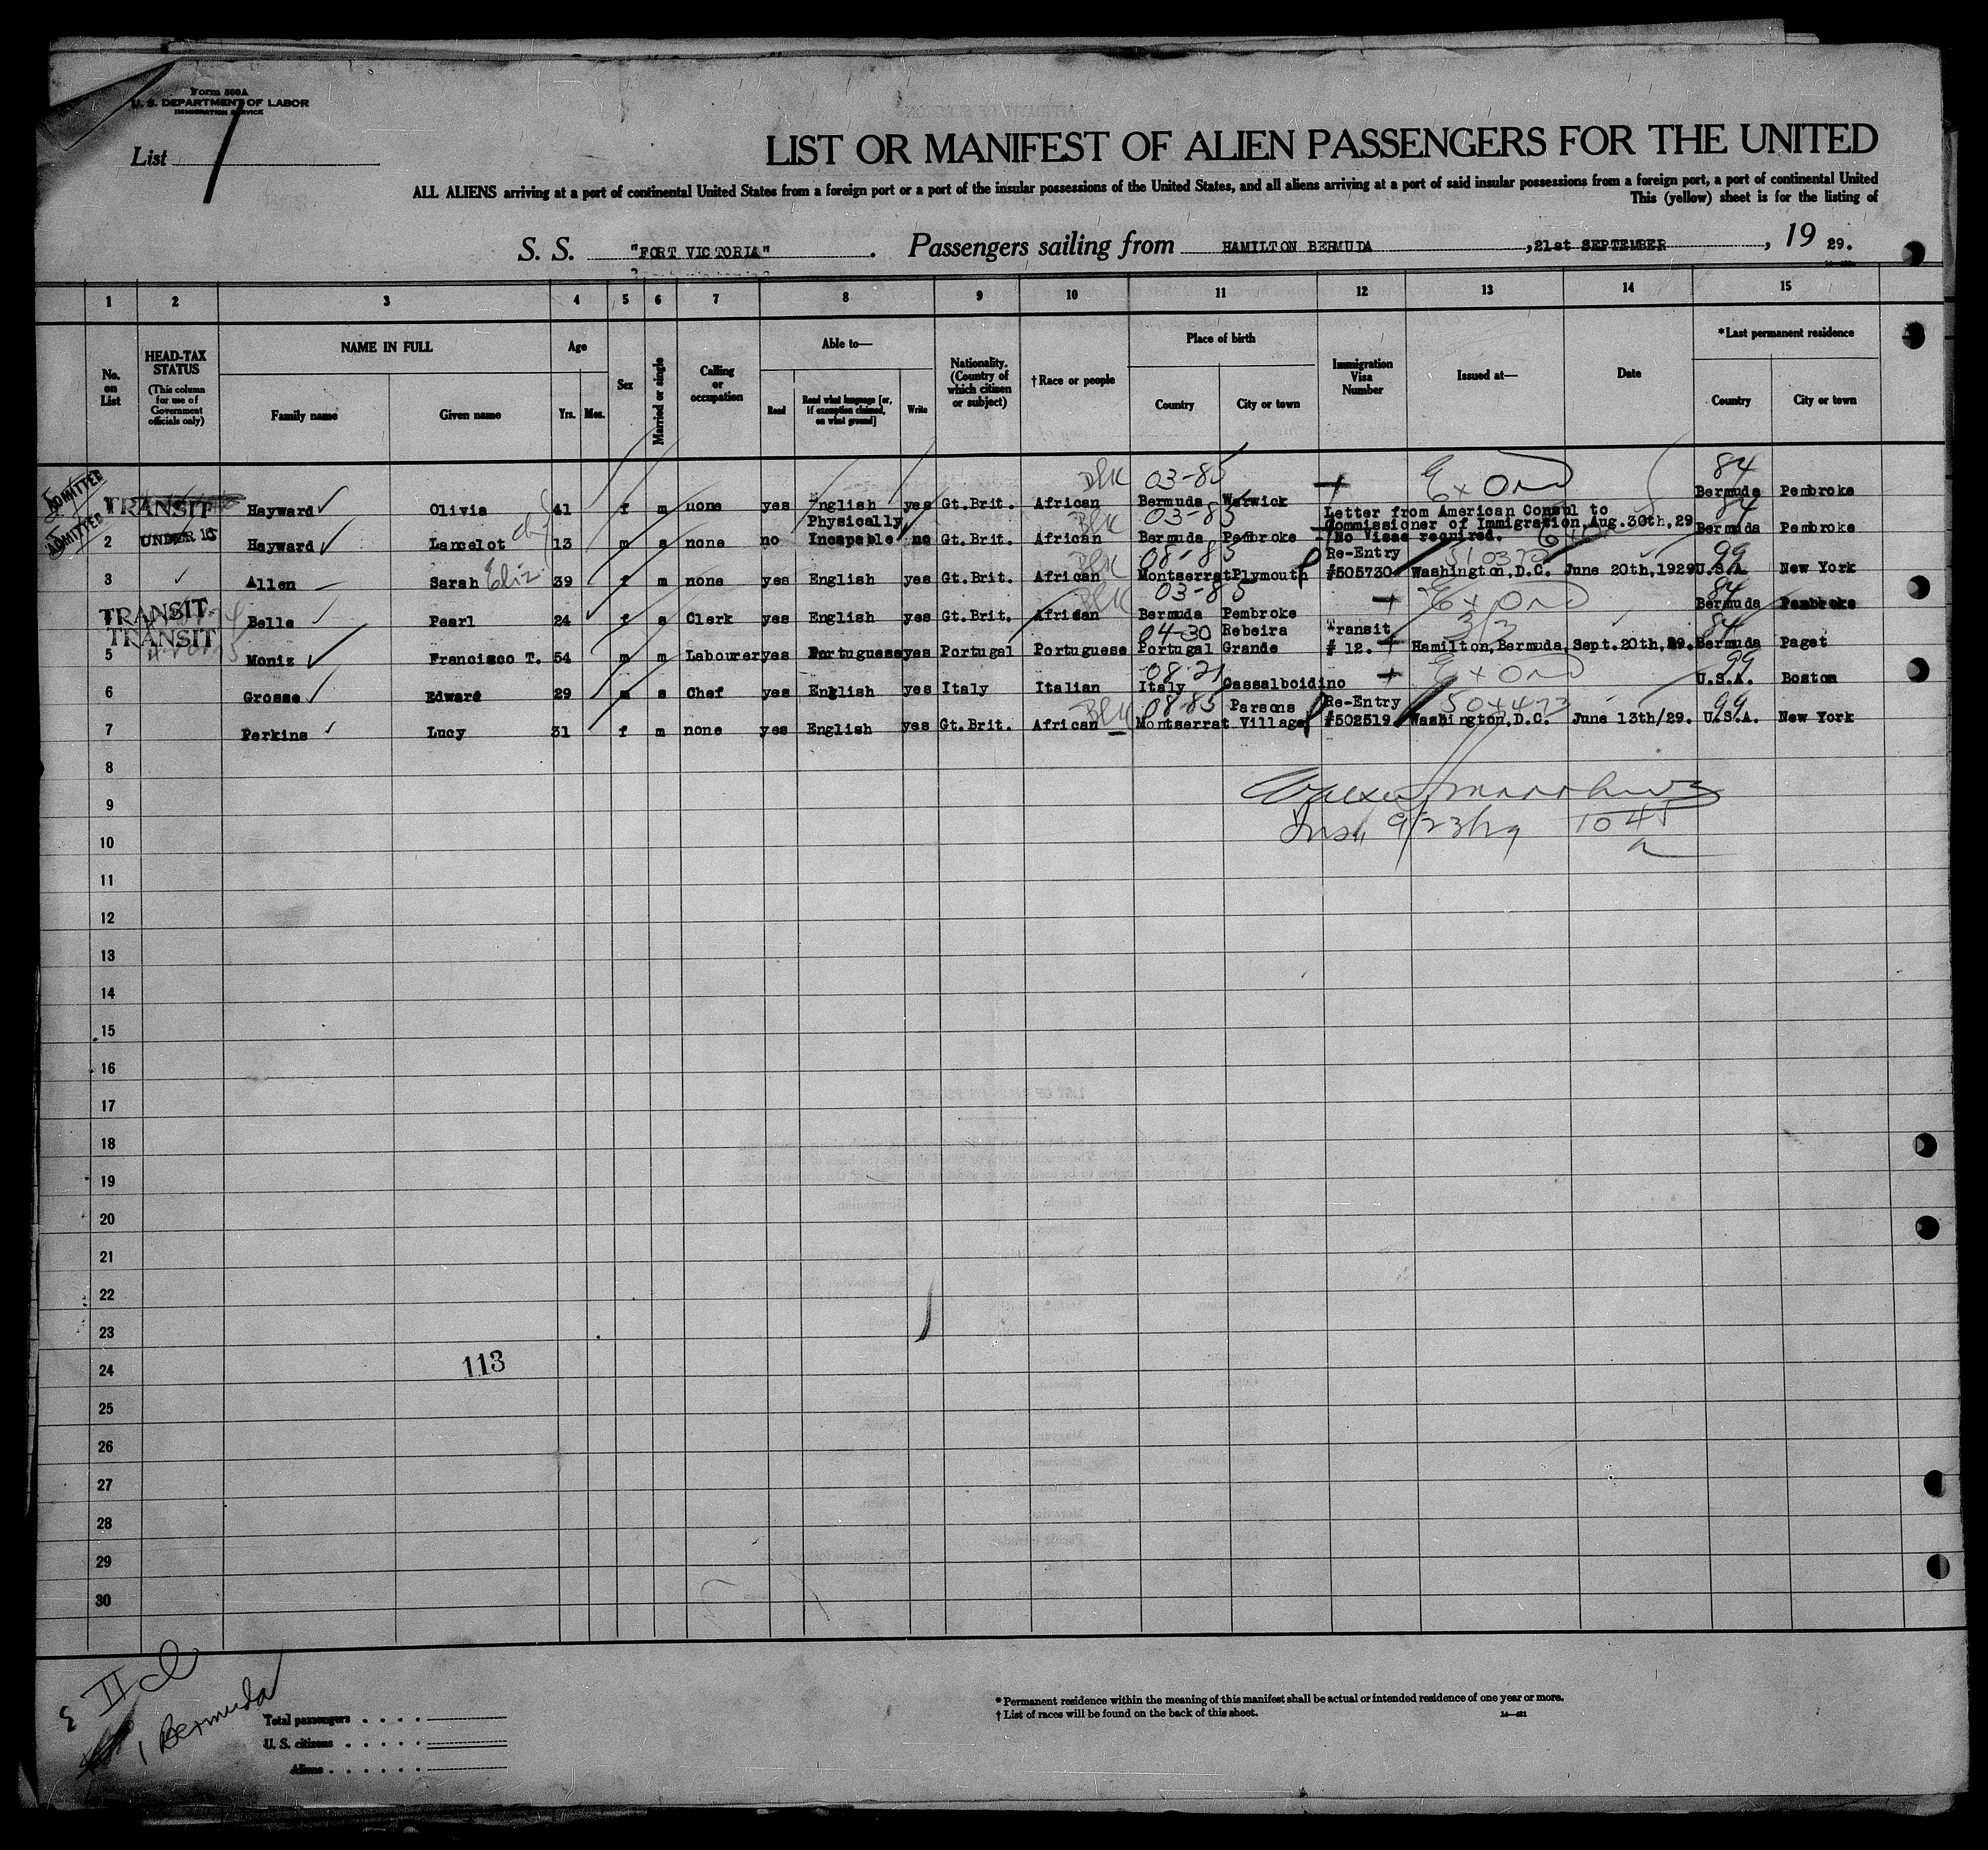 Form 500A
U. S. DEPARTMENT OF LABOR
IMMIGRATION SERVICE
List 1
LIST OR MANIFEST OF ALIEN PASSENGERS FOR THE UNITED
ALL ALIENS arriving at a port of continental United States from a foreign port or a port of the insular possessions of the United States, and all aliens arriving at a port of said insular possessions from a foreign port, a port of continental United
This (yellow) sheet is for the listing of
S. S. "FORT VICTORIA" . Passengers sailing from HAMILTON BERMUDA ,21st SEPTEMBER , 19 29.
1 2 3 4 5 6 7 8 9 10 11 12 13 14 15
No. on List
HEAD-TAX STATUS
(This column for use of Government officials only)
NAME IN FULL
Family name
Given name
Age
Yrs. Mos.
Sex
Married or single
Calling or occupation
Able to—
Read
Read what language [or, if exemption claimed, on what ground]
Write
Nationality. (Country of which citizen or subject)
†Race or people
Place of birth
Country
City or town
Immigration Visa Number
Issued at—
Date
*Last permanent residence
Country
City or town
ADMITTED
03-85 84
1 TRANSIT Hayward Olivia 41 f m none yes English yes Gt.Brit. African Bermuda Warwick Bermuda Pembroke
ADMITTED
Physically Blk 03-85 Letter from American Consul to Commissioner of Immigration,Aug.30th,29 84
2 UNDER 16 Hayward Lancelot 13 m s none no Incapable no Gt.Brit. African Bermuda Pembroke No Visas required. Bermuda Pembroke
Blk 08-85 Re-Entry 99
3 Allen Sarah Eliz. 39 f m none yes English yes Gt.Brit. African Montserrat Plymouth #505730 Washington,D.C. June 20th,1929 U.S.A. New York
Blk 03-85 84
4 TRANSIT Belle Pearl 24 f s Clerk yes English yes Gt.Brit. African Bermuda Pembroke Bermuda Pembroke
04-30 Rebeira Transit 84
5 TRANSIT Moniz Francisco T. 54 m m Labourer yes Portuguese yes Portugal Portuguese Portugal Grande # 12. Hamilton,Bermuda,Sept.20th,29. Bermuda Paget
08-21 99
6 Grosse Edward 29 m s Chef yes English yes Italy Italian Italy Cassalboidino U.S.A. Boston
Blk 08-85 Parsons Re-Entry 99
7 Perkins Lucy 31 f m none yes English yes Gt.Brit. African Montserrat Village #502519 Washington,D.C. June 13th/29. U.S.A. New York
8
9
9/23/29 10 45
10 a
11
12
13
14
15
16
17
18
19
20
21
22
23
24 113
25
26
27
28
29
30
II cl
1 Bermuda
Total passengers
U. S. citizens
Aliens
* Permanent residence within the meaning of this manifest shall be actual or intended residence of one year or more.
† List of races will be found on the back of this sheet.